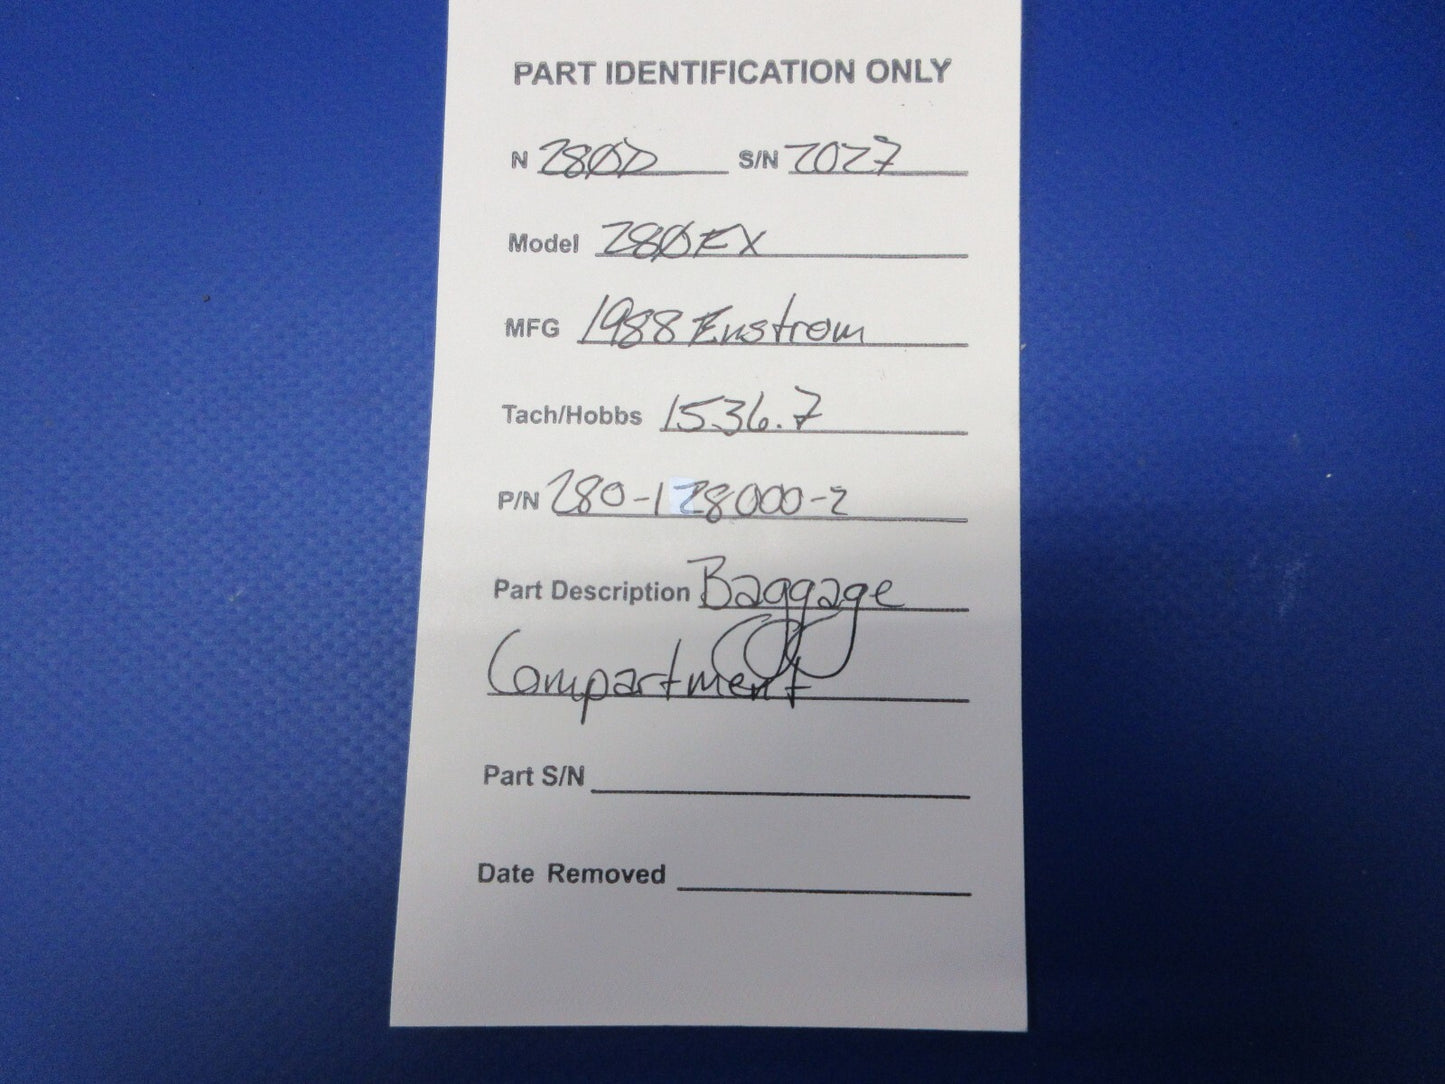 PART IDENTIFICATION ONLY
N 280D S/N 2027
Model 280FX
MFG 1988 Enstrom
Tach/Hobbs 1536.7
P/N 280-128000-2
Part Description Baggage
Compartment
Part S/N
Date Removed